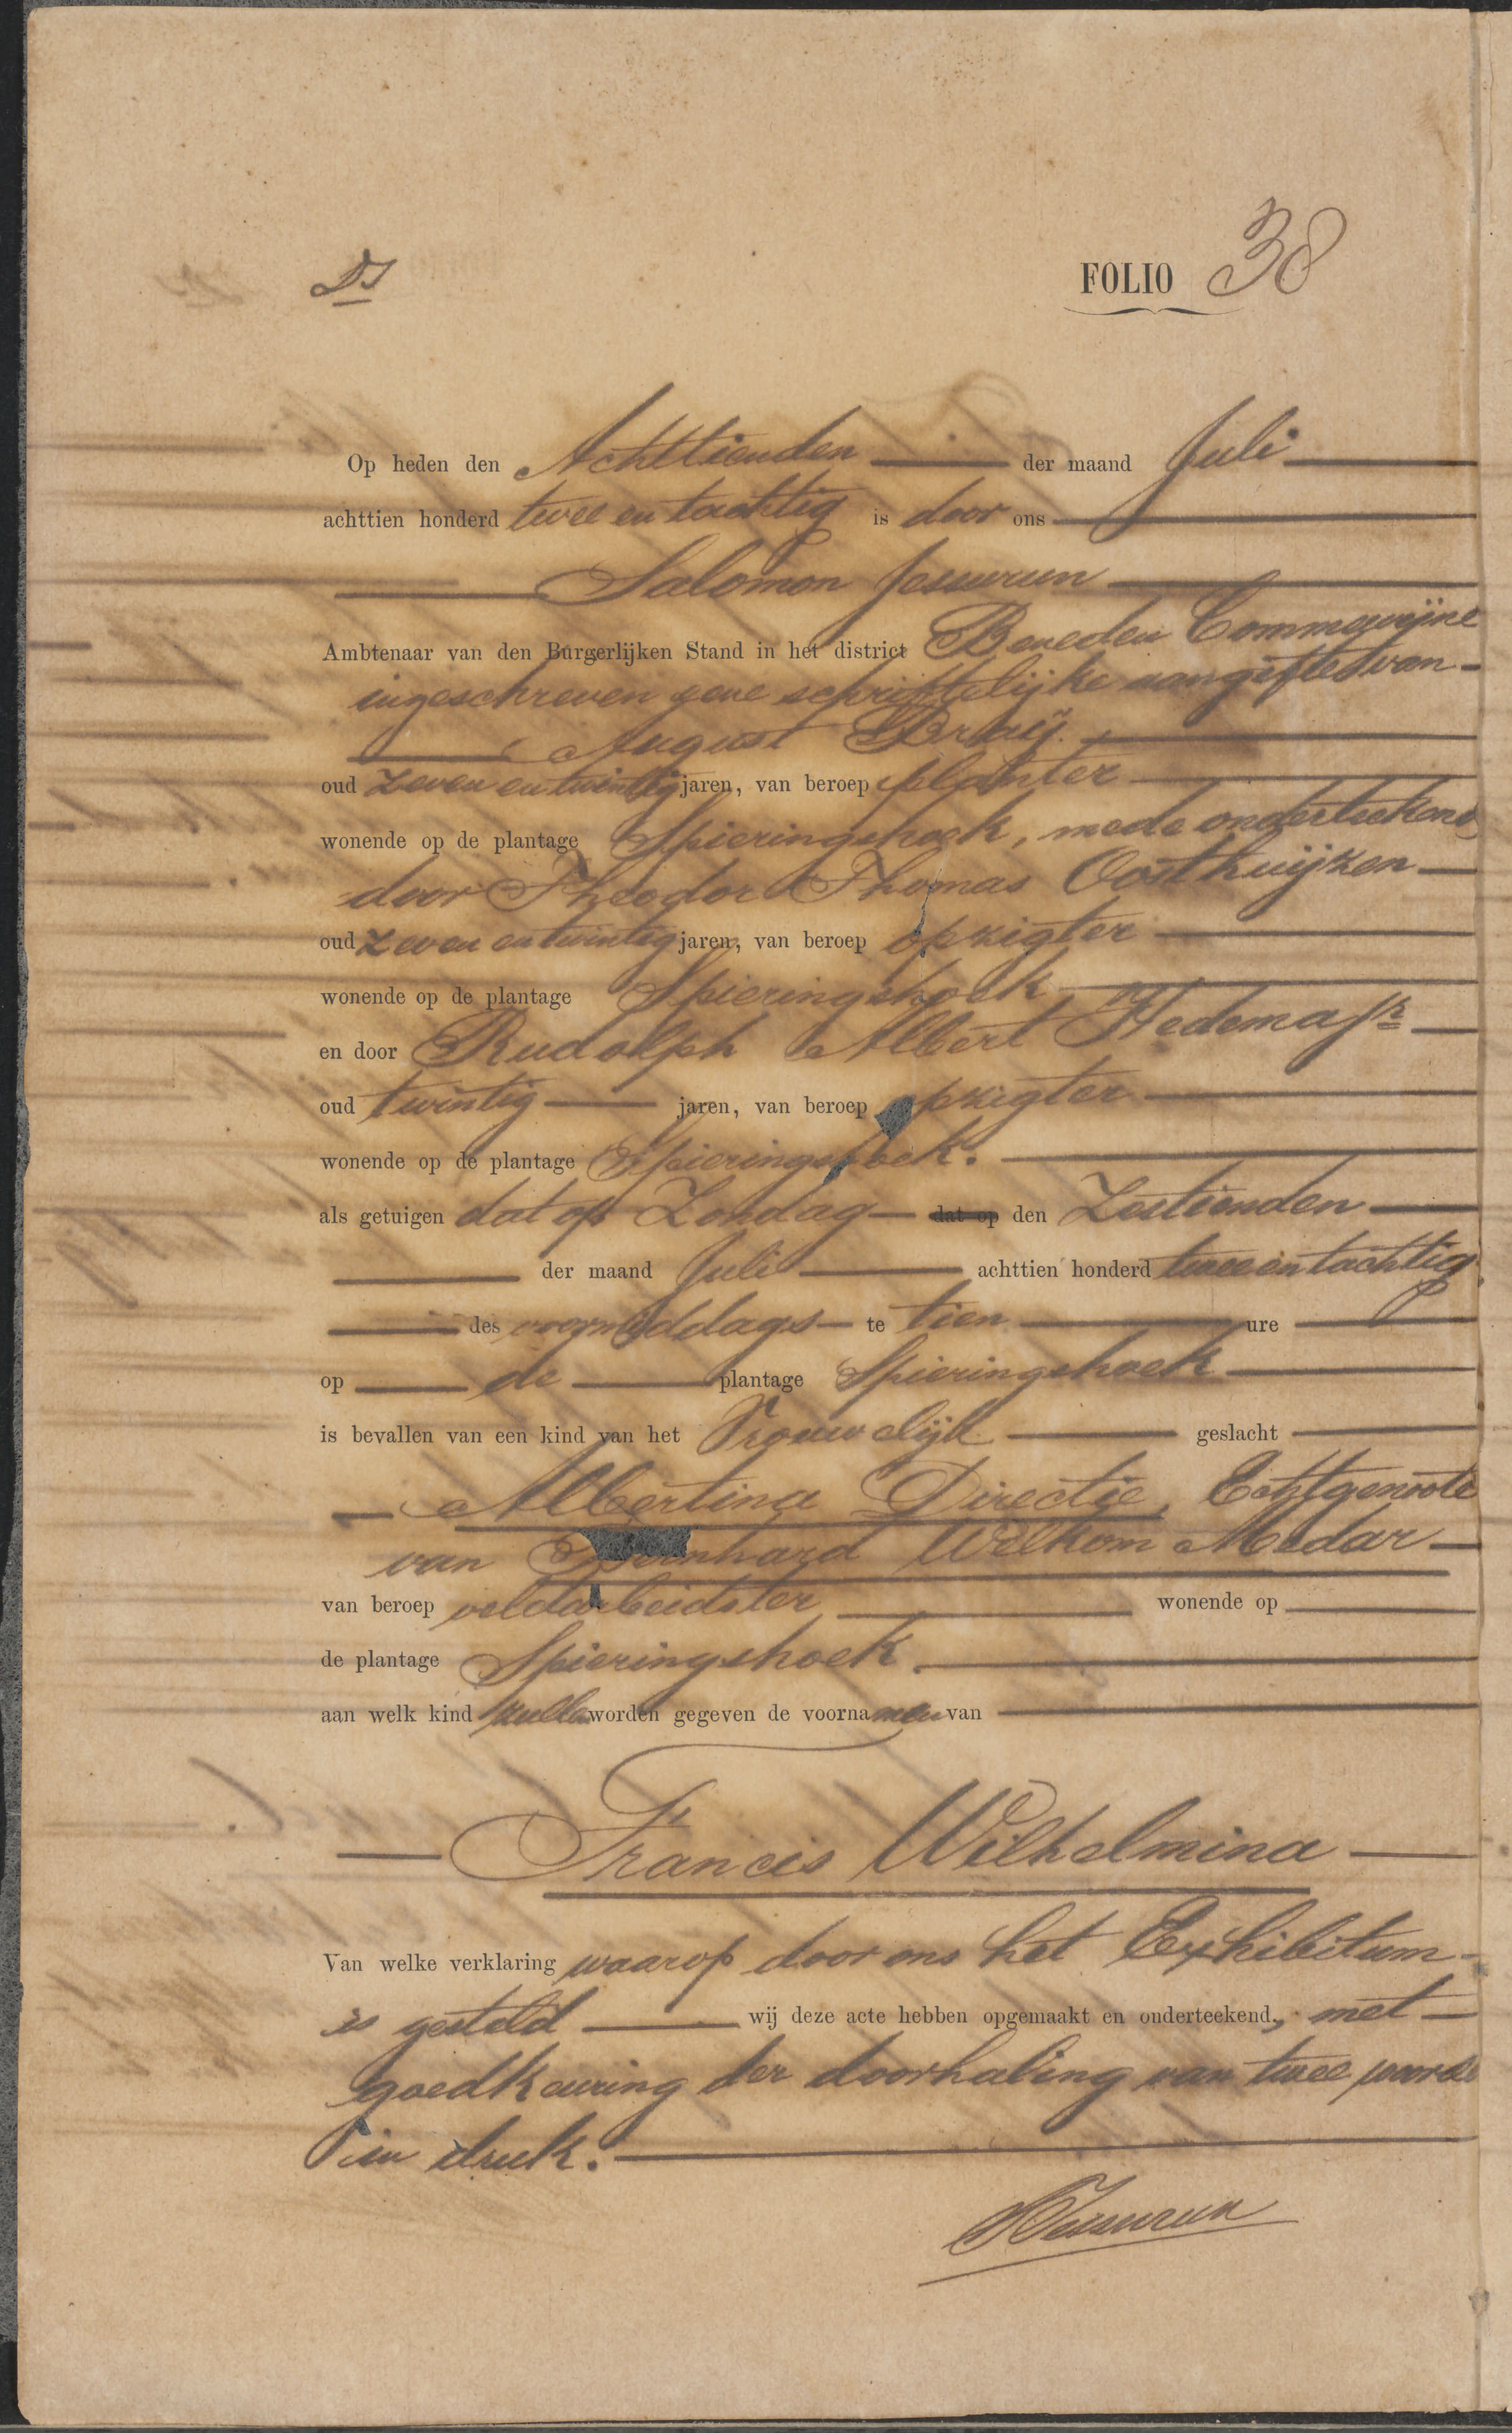 Ds
FOLIO 38
Op heden den Achttienden der maand Juli
achttien honderd twee en tachtig is door ons
Salomon Jessurun
Ambtenaar van den Burgerlijken Stand in het district Beneden Commewijne
ingeschreven eene schriftelijke aangifte van
August Braij
oud zeven en twintig jaren, van beroep planter
wonende op de plantage Spieringshoek, mede onderteekend
door Theodor Thomas Oosthuijzen
oud zeven en twintig jaren, van beroep opzigter
wonende op de plantage Spieringshoek
en door Rudolph Albert Hedema Jr
oud twintig jaren, van beroep opzigter
wonende op de plantage Spieringshoek.
als getuigen dat op Zondag dat op den Zestienden
der maand Juli achttien honderd twee en tachtig
des voormiddags te tien ure
op de plantage Spieringshoek
is bevallen van een kind van het Vrouwelijk geslacht
Albertina Directie, Echtgenoote
van Bernhard Welkom Madar
van beroep veldarbeidster wonende op
de plantage Spieringshoek
aan welk kind zullen worden gegeven de voornamen van
Francis Wilhelmina
Van welke verklaring waarop door ons het Exhibitum
is gesteld wij deze acte hebben opgemaakt en onderteekend, met
goedkeuring der doorhaling van twee woorde
in druk.
SJessurun